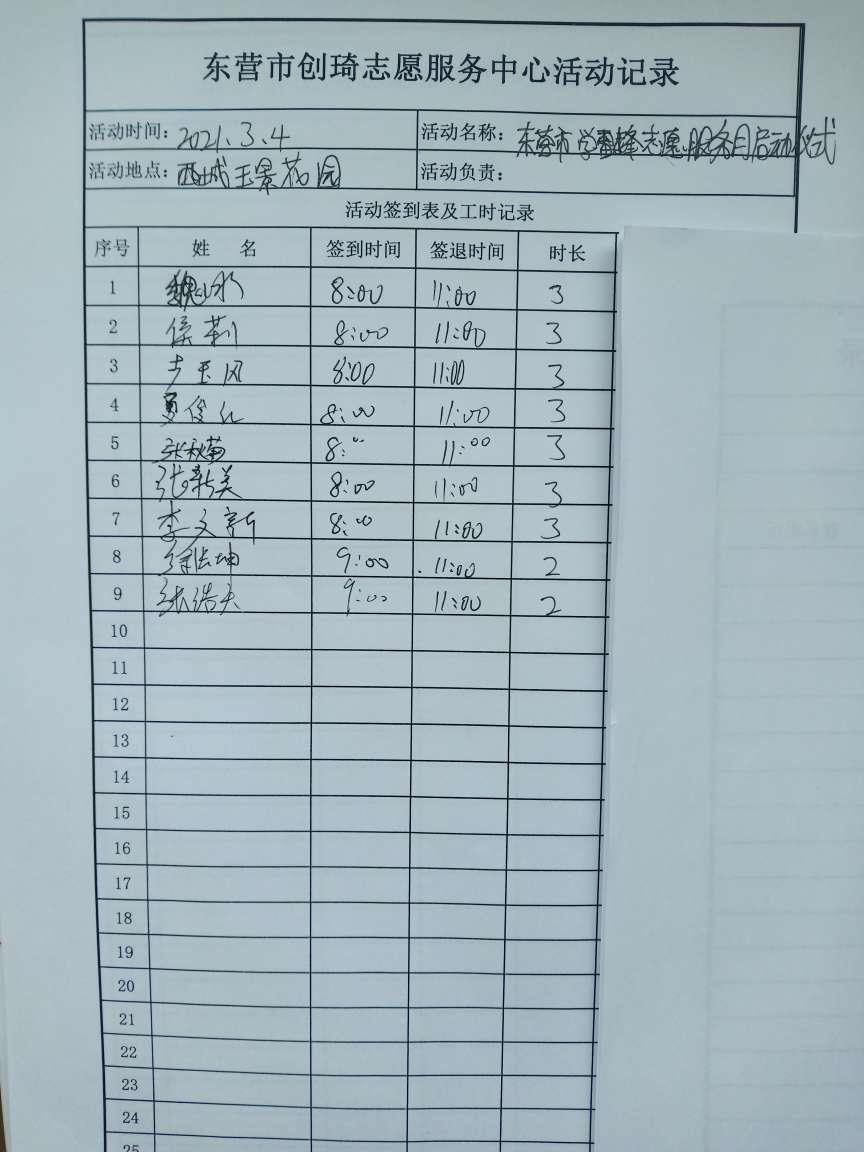 东营市创琦志愿服务中心活动记录
活动时间：2021.3.4 活动名称：东营市学雷锋志愿服务月启动仪式
活动地点：西城玉景花园 活动负责：
活动签到表及工时记录
序号 姓 名 签到时间 签退时间 时长
1 8:00 11:00 3
2 侯莉 8:00 11:00 3
3 步玉风 8:00 11:00 3
4 夏俊红 8:00 11:00 3
5 张秋菊 8:00 11:00 3
6 张新美 8:00 11:00 3
7 李文新 8:00 11:00 3
8 坤 9:00 11:00 2
9 张浩天 9:00 11:00 2
10
11
12
13
14
15
16
17
18
19
20
21
22
23
24
25